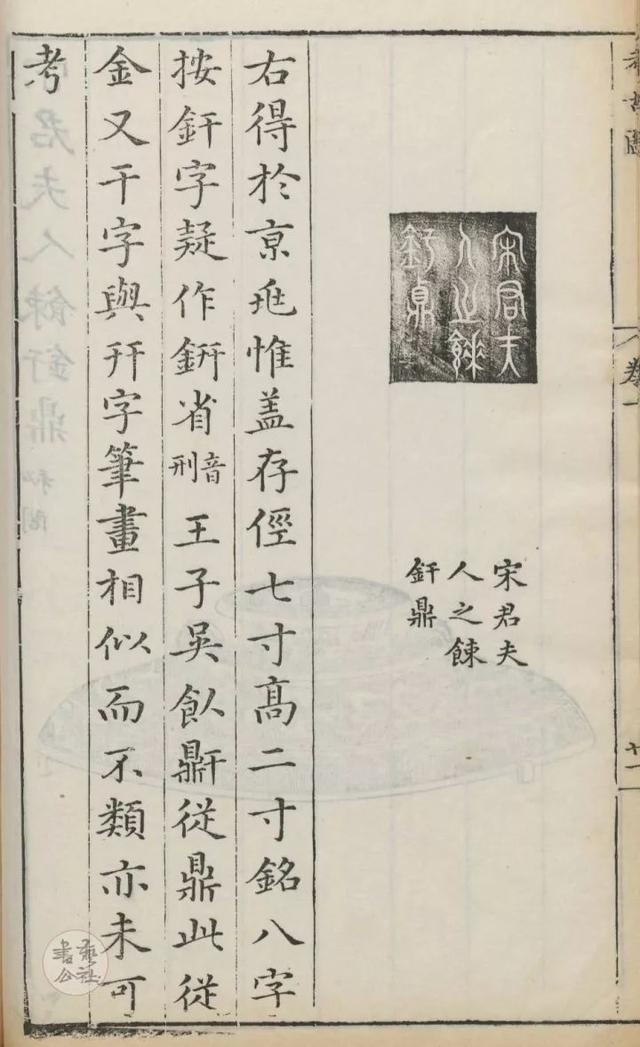 宋君夫
人之餗
釪鼎
宋君夫
人之餗
釪鼎
右得於京兆惟盖存徑七寸高二寸銘八字
按釪字疑作鈃省音刑王子吳飤鼾從鼎此從
金又干字與幵字筆畫相似而不類亦未可
考
考古圖
卷一
廿一